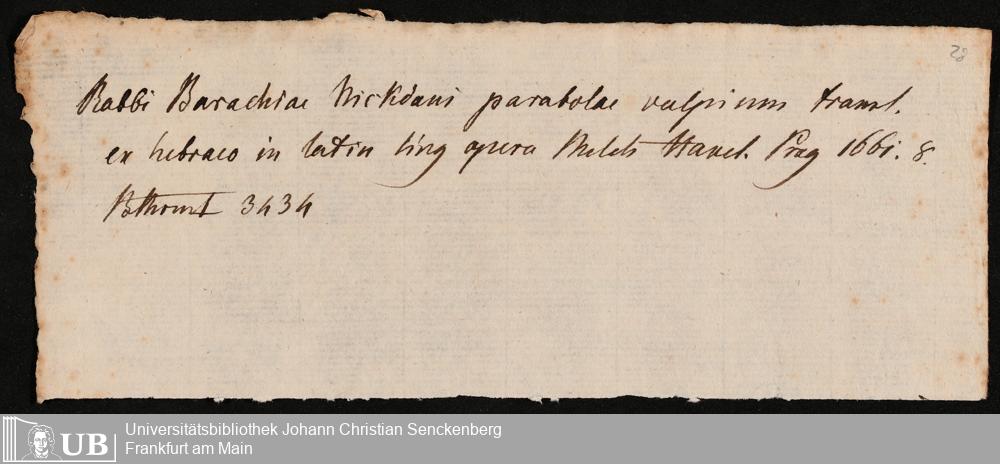 28
Rabbi Barachiae Nickdani parabolae vulpium transl.
ex hebraeo in latin ling opera Melch Hanel. Prag 1661. 8.
3434
Universitätsbibliothek Johann Christian Senckenberg
Frankfurt am Main
UB